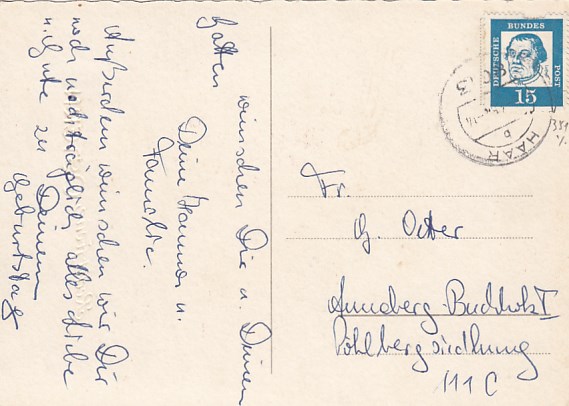 Gatten wünschen Dir u. Deinem
Deine Hannor u.
Familie.
Außerdem wünschen wir Dir
noch nachträglich alles Liebe
u. Gute zu Deinem
Geburtstag
DEUTSCHE BUNDES POST
15
HAAR
b
351
Fr.
G. Otter
Annaberg-Buchholz I
Pöhlbergsiedlung
111 C